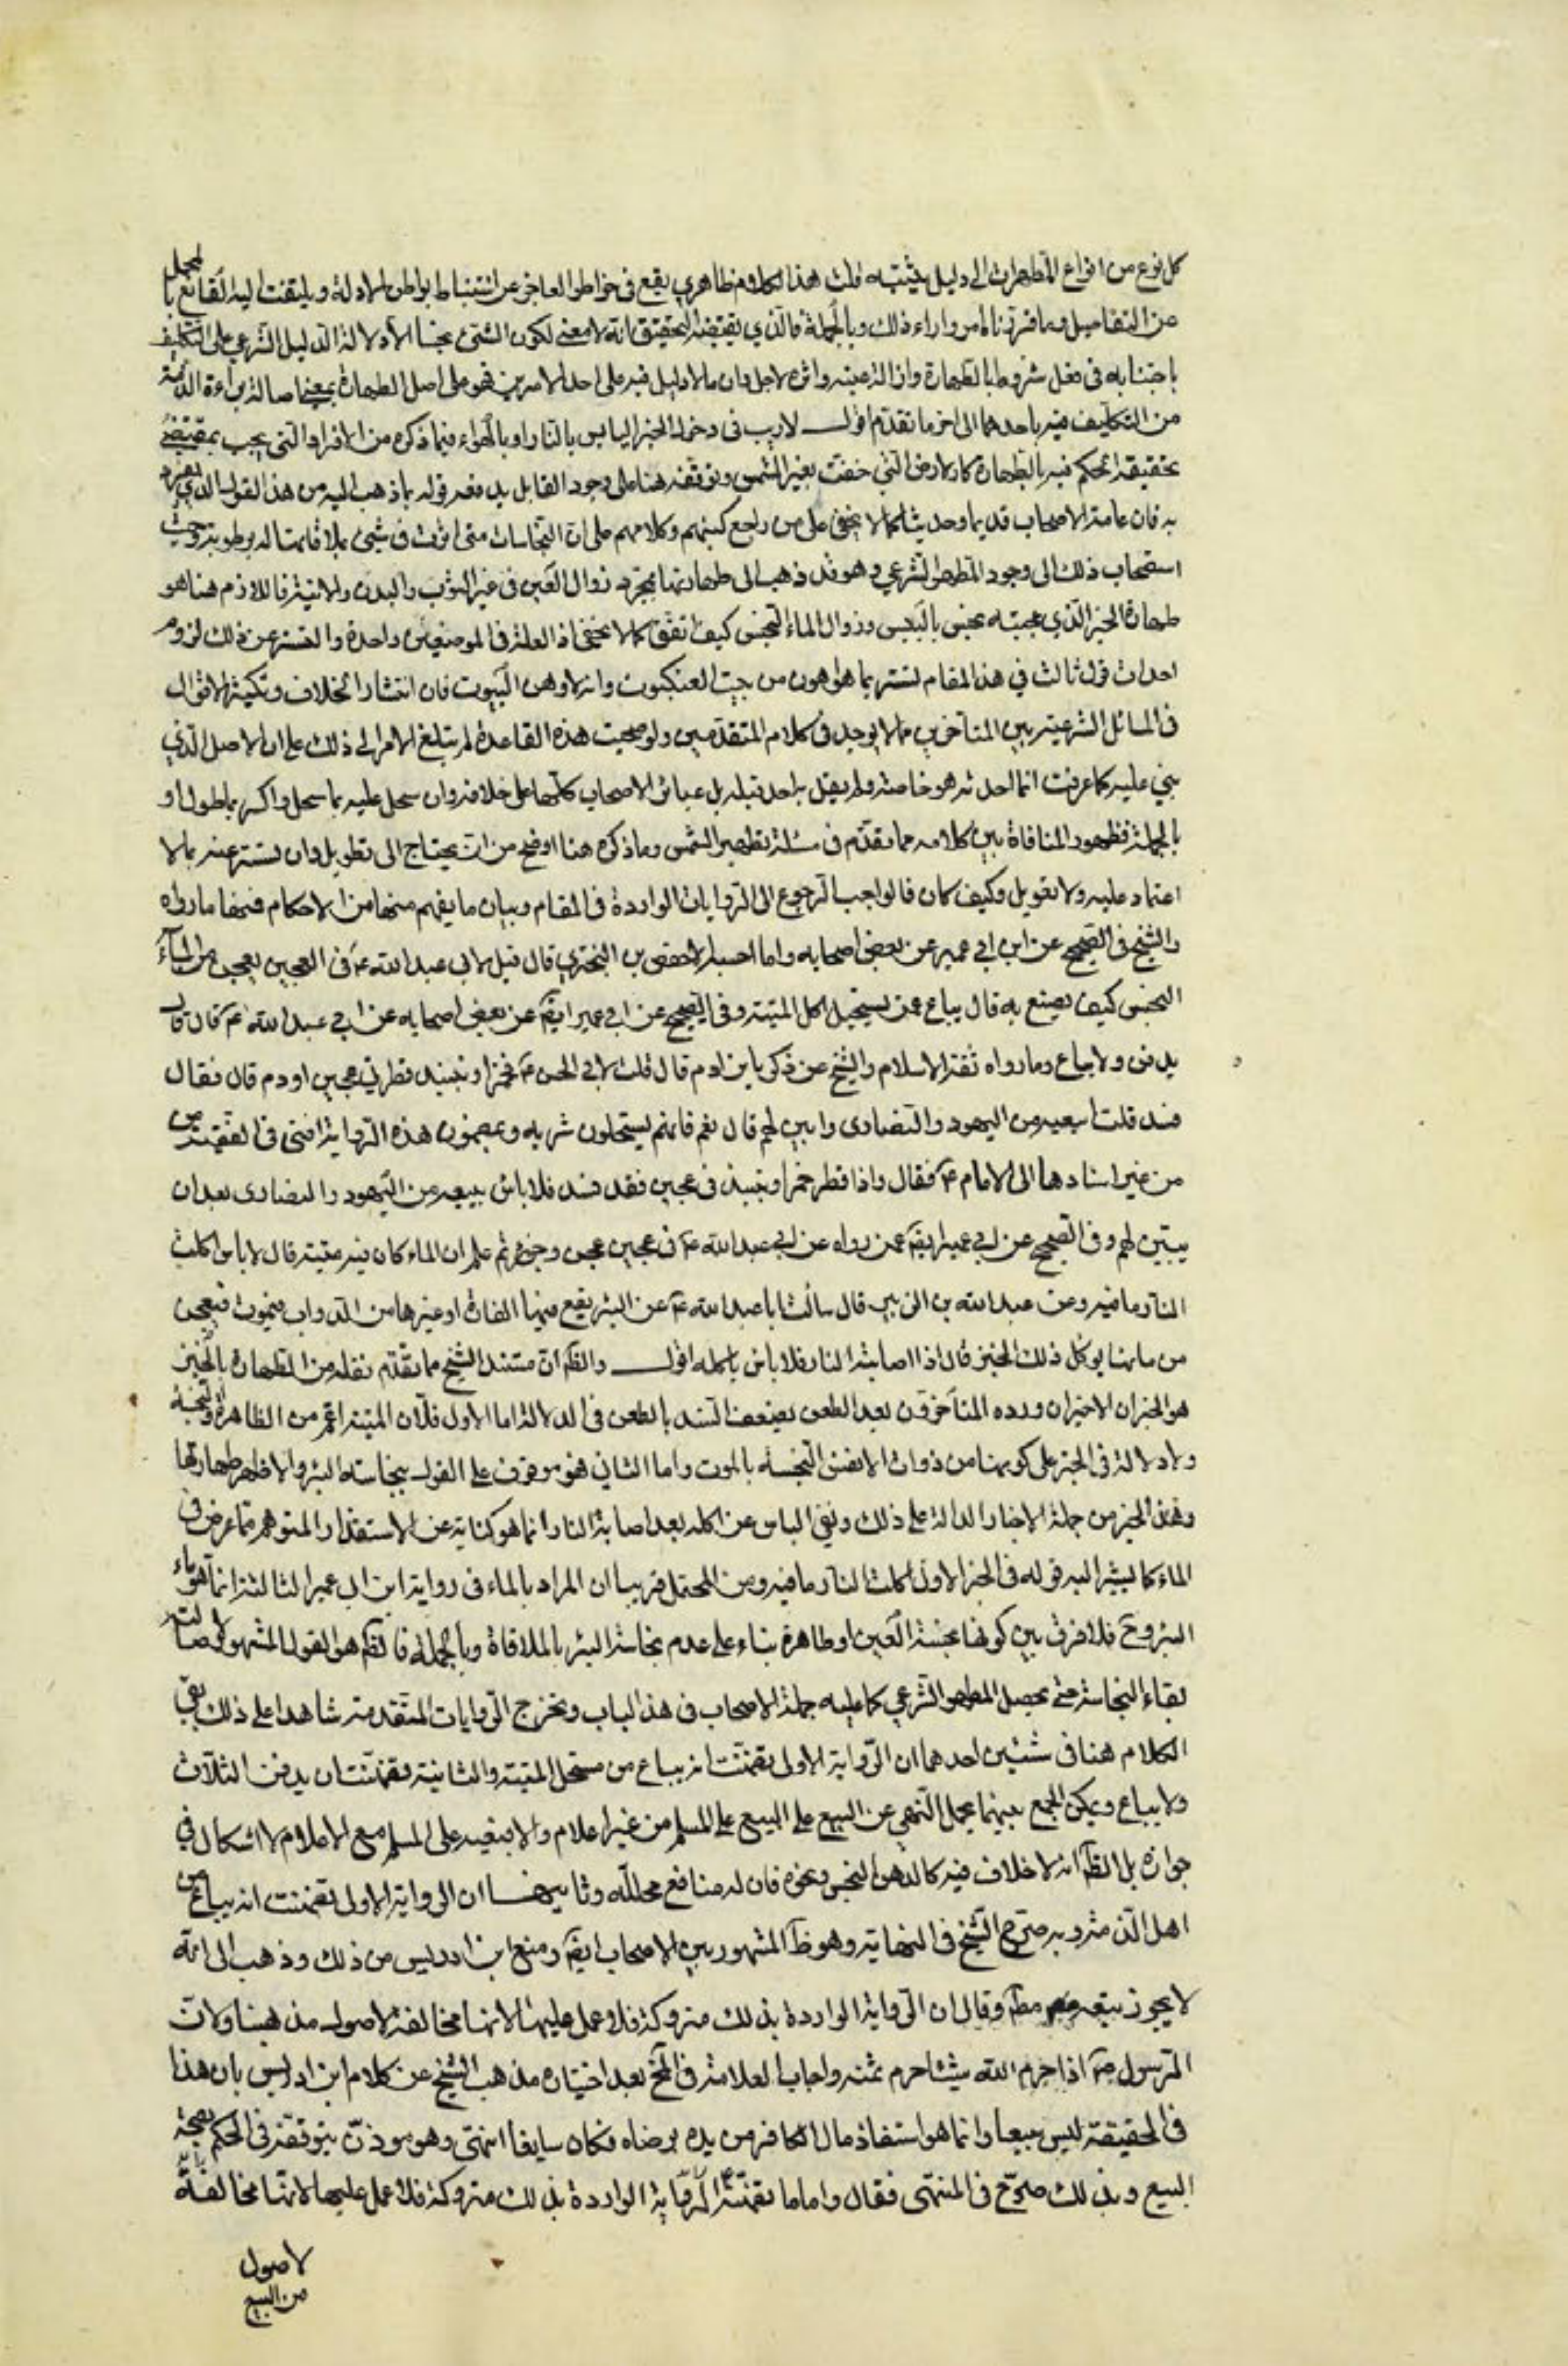 كل نوع من انواع المطهرات الى دليل يثبته قلت هذا الكلام ظاهري يقع في خواطر العاجز عن استنباط بواطن الادلة ويلتفت اليه القانع بالمجمل
عن التفاصيل وما قرّبنا لك من وراء ذلك وبالجملة فالذي يقتضيه التحقيق انه لا معنى لكون الشئ نجسا الا دلالة الدليل الشرعي على التكليف
باجتنابه في فعل شروط بالطهارة وازالة عينه واثره لاجل وان ما لا دليل فيه على احد الامرين فهو على اصل الطهارة بمعنى اصالة براءة الذمة
من التكليف فيه باحدهما الى اخر ما تقدم اقول لا ريب في دخول الخبز اليابس بالنار او بالهواء فيما ذكره من الافراد التي يجب بمقتضى
تحقيقه الحكم فيه بالطهارة كالارض التي جففت بغير الشمس وتوقفه هنا على وجود القايل يدفعه قوله بما ذهب اليه من هذا القول الذي تفرد
به فان عامة الاصحاب قديما وحديثا كما لا يخفى على من راجع كتبهم وكلامهم على ان النجاسات متى اثرت في شئ بملاقاتها له برطوبة وجب
استصحاب ذلك الى وجود المطهر الشرعي وهو قد ذهب الى طهارتها بمجرد زوال العين في غير الثوب والبدن والانية فاللازم هنا هو
طهارة الخبز الذي عجينه نجس باليبس وزوال الماء النجس كيف اتفق كما لا يخفى اذ العلة في الموضعين واحدة والتستر عن ذلك لزوم
احداث قول ثالث في هذا المقام تستر بما هو اهون من بيت العنكبوت وانه لاوهن البيوت فان انتشار الخلاف وتكثير الاقوال
في المسائل الشرعية بين المتاخرين مما لا يوجد في كلام المتقدمين ولو صحت هذه القاعدة لم يبلغ الامر الى ذلك على ان الاصل الذي
بني عليه كما عرفت انما احدثه هو خاصة ولم يقل به احد قبله بل عبائر الاصحاب كلها على خلافه وان سجل عليه بما سجل واكثر بما طول او
بالجملة فظهور المنافاة بين كلامه مما تقدم في مسئلة تطهير الشمس وما ذكره هنا اوضح من ان يحتاج الى تطويل وان تستر عنه بما لا
اعتماد عليه ولا تعويل وكيف كان فالواجب الرجوع الى الروايات الواردة في المقام وبيان ما يفهم منها من الاحكام فمنها ما رواه
والشيخ في الصحيح عن ابن ابي عمير عن بعض اصحابه واما احسبه الا حفص بن البختري قال قيل لابي عبد الله ع في العجين يعجن من الماء
النجس كيف يصنع به قال يباع ممن يستحل اكل الميتة وفي الصحيح عن ابي عمير ايضا عن بعض اصحابه عن ابي عبد الله ع قال قال
يدفن ولا يباع وما رواه ثقة الاسلام والشيخ عن زكريا بن ادم قال قلت لابي الحسن ع فخمر او نبيذ قطر في عجين او دم قال فقال
فسد قلت ابيعه من اليهود والنصارى وابين لهم قال نعم فانهم يستحلون شربه وبمضمون هذه الرواية افتى في الفقيه من
من غير اسنادها الى الامام ع فقال واذا قطر خمر او نبيذ في عجين فقد فسد فلا باس ببيعه من اليهود والنصارى بعد ان
يبين لهم وفي الصحيح عن ابي عمير ايضا عمن رواه عن ابي عبد الله ع في عجين عجن وخبز ثم علم ان الماء كان فيه ميتة قال لا باس اكلت
النار ما فيه وعن عبد الله بن الزبير قال سالت ابا عبد الله ع عن البئر يقع فيها الفارة او غيرها من الدواب فيموت فيعجن
من مائها ايوكل ذلك الخبز قال اذا اصابته النار فلا باس باكله اقول والظ ان مستند الشيخ مما تقدم نقله من الطهارة بالخبز
هو الخبران الاخيران ورده المتاخرون بعد الطعن بضعف السند بالطعن في الدلالة اما الاول فلان الميتة اعم من الطاهرة والنجسة
ولا دلالة في الخبر على كونها من ذوات الانفس النجسة بالموت واما الثاني فهو موقوف على القول بنجاسة البئر والاظهر طهارتها
وهذا الخبر من جملة الاخبار الدالة على ذلك ونفي الباس عن اكله بعد اصابة النار انما هو كناية عن الاستقذار المتوهم مما عرض في
الماء كما يشير اليه قوله في الخبر الاول اكلت النار ما فيه ومن المحتمل قريبا ان المراد بالماء في رواية ابن ابي عمير الثالثة انما هو ماء
البئر وح فلا فرق بين كونها نجسة العين او طاهرة بناء على عدم نجاسة البئر بالملاقاة وبالجملة فالظ هو القول المشهور لاصالة
بقاء النجاسة حتى يحصل المطهر الشرعي كما عليه جملة الاصحاب في هذا الباب وتخرج الروايات المتقدمة شاهدا على ذلك بقي
الكلام هنا في شيئين احدهما ان الرواية الاولى تضمنت انه يباع من مستحل الميتة والثانية تضمنت ان يدفن الثلاث
ولا يباع ويمكن الجمع بينهما بحمل النهي عن البيع على البيع على المسلم من غير اعلام والا فبيعه على المسلم مع الاعلام لا اشكال في
جوازه بل الظ انه لا خلاف فيه كالدهن النجس ونحوه فان له منافع محللة وثانيهما ان الرواية الاولى تضمنت انه يباع من
اهل الذمة وبه صرح الشيخ في النهاية وهو ظ المشهور بين الاصحاب ايضا ومنع ابن ادريس من ذلك وذهب الى انه
لا يجوز بيعه مط وقال ان الرواية الواردة بذلك متروكة فلا عمل عليها لانها مخالفة لاصول مذهبنا ولان
الرسول ص اذا حرم الله شيئا حرم ثمنه واجاب العلامة في المخ بعد اختياره مذهب الشيخ عن كلام ابن ادريس بان هذا
في الحقيقة ليس بيعا وانما هو استنقاذ مال الكافر من يده برضاه فكان سايغا انتهى وهو موذن بتوقفه في الحكم بصحة
البيع وبذلك صرح في المنتهى فقال واما ما تضمنته الرواية الواردة بذلك متروكة فلا عمل عليها لانها مخالفة
لاصول
من البيع